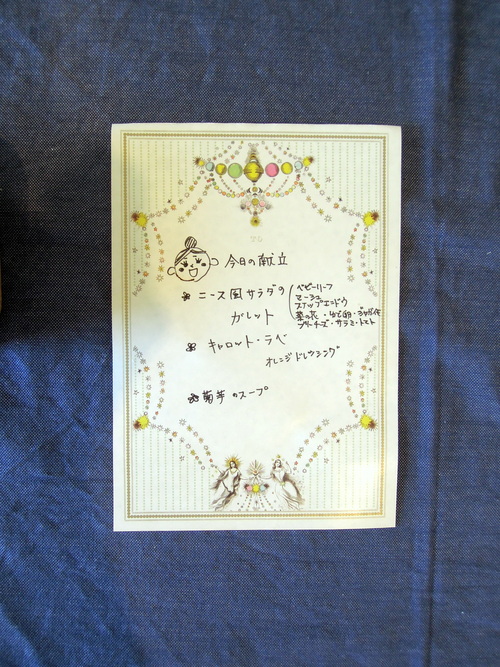 TO
今日の献立
ニース風サラダの
ガレット
ベビーリーフ
マーシュ
スナップエンドウ
菜の花・ゆで卵・ジャガイモ
ブリーチーズ・サラミ・トマト
キャロット・ラペ
オレンジドレッシング
菊芋のスープ